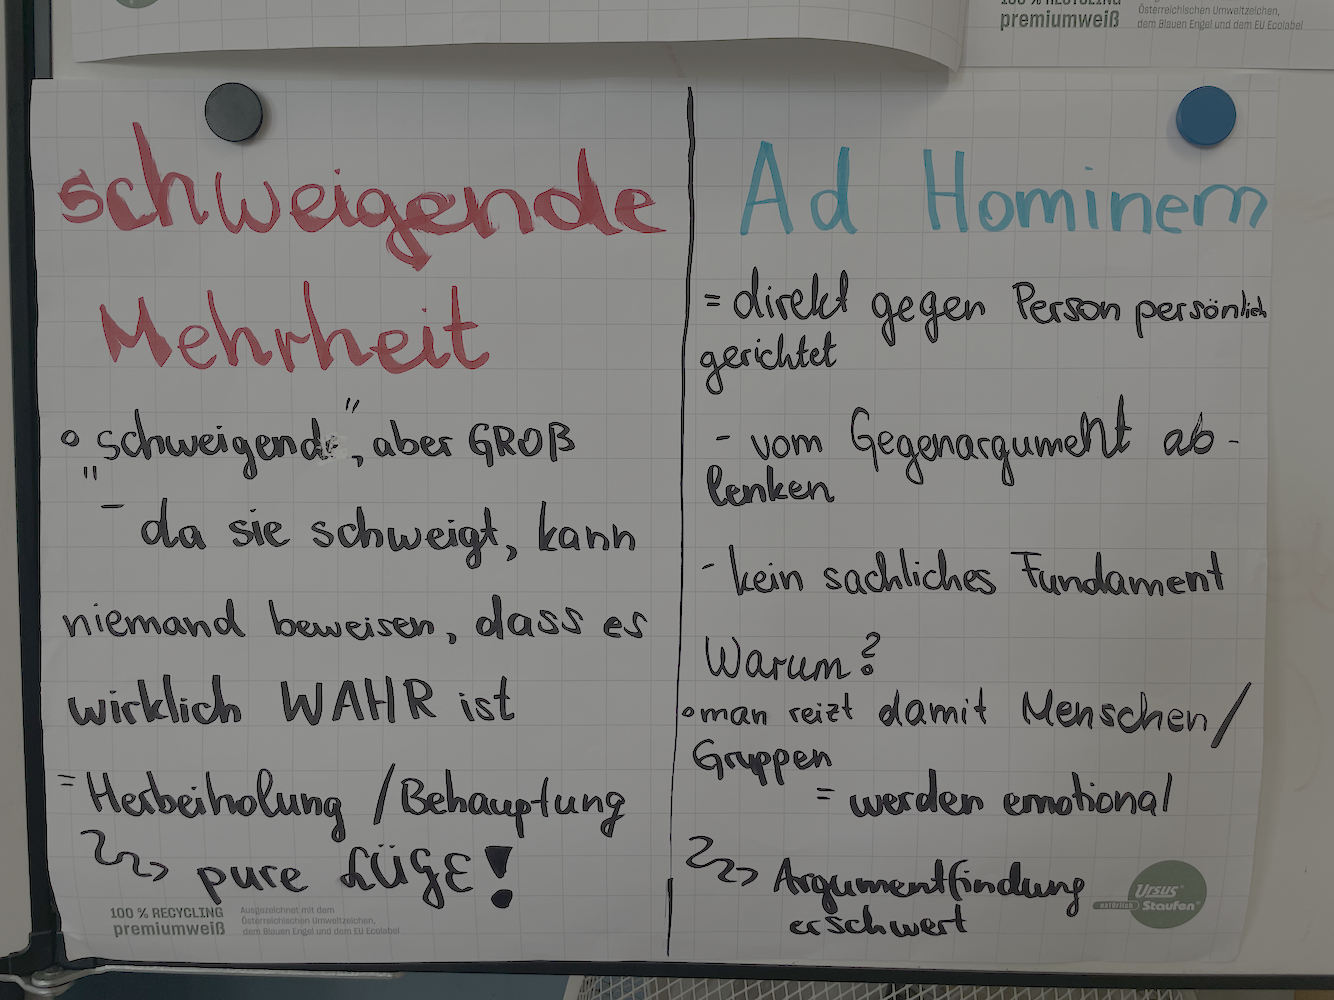 100 % RECYCLING
premiumweiß
Österreichischen Umweltzeichen,
dem Blauen Engel und dem EU Ecolabel
schweigende
Mehrheit
° "schweigende", aber GROß
- da sie schweigt, kann
niemand beweisen, dass es
wirklich WAHR ist
= Herbeiholung / Behauptung
pure LÜGE!
100 % RECYCLING
premiumweiß
Ausgezeichnet mit dem
Österreichischen Umweltzeichen,
dem Blauen Engel und dem EU Ecolabel
Ad Hominem
= direkt gegen Person persönlich
gerichtet
- vom Gegenargument ab-
lenken
- kein sachliches Fundament
Warum?
° man reizt damit Menschen/
Gruppen
= werden emotional
Argumentfindung
erschwert
Ursus®
natürlich
Staufen®